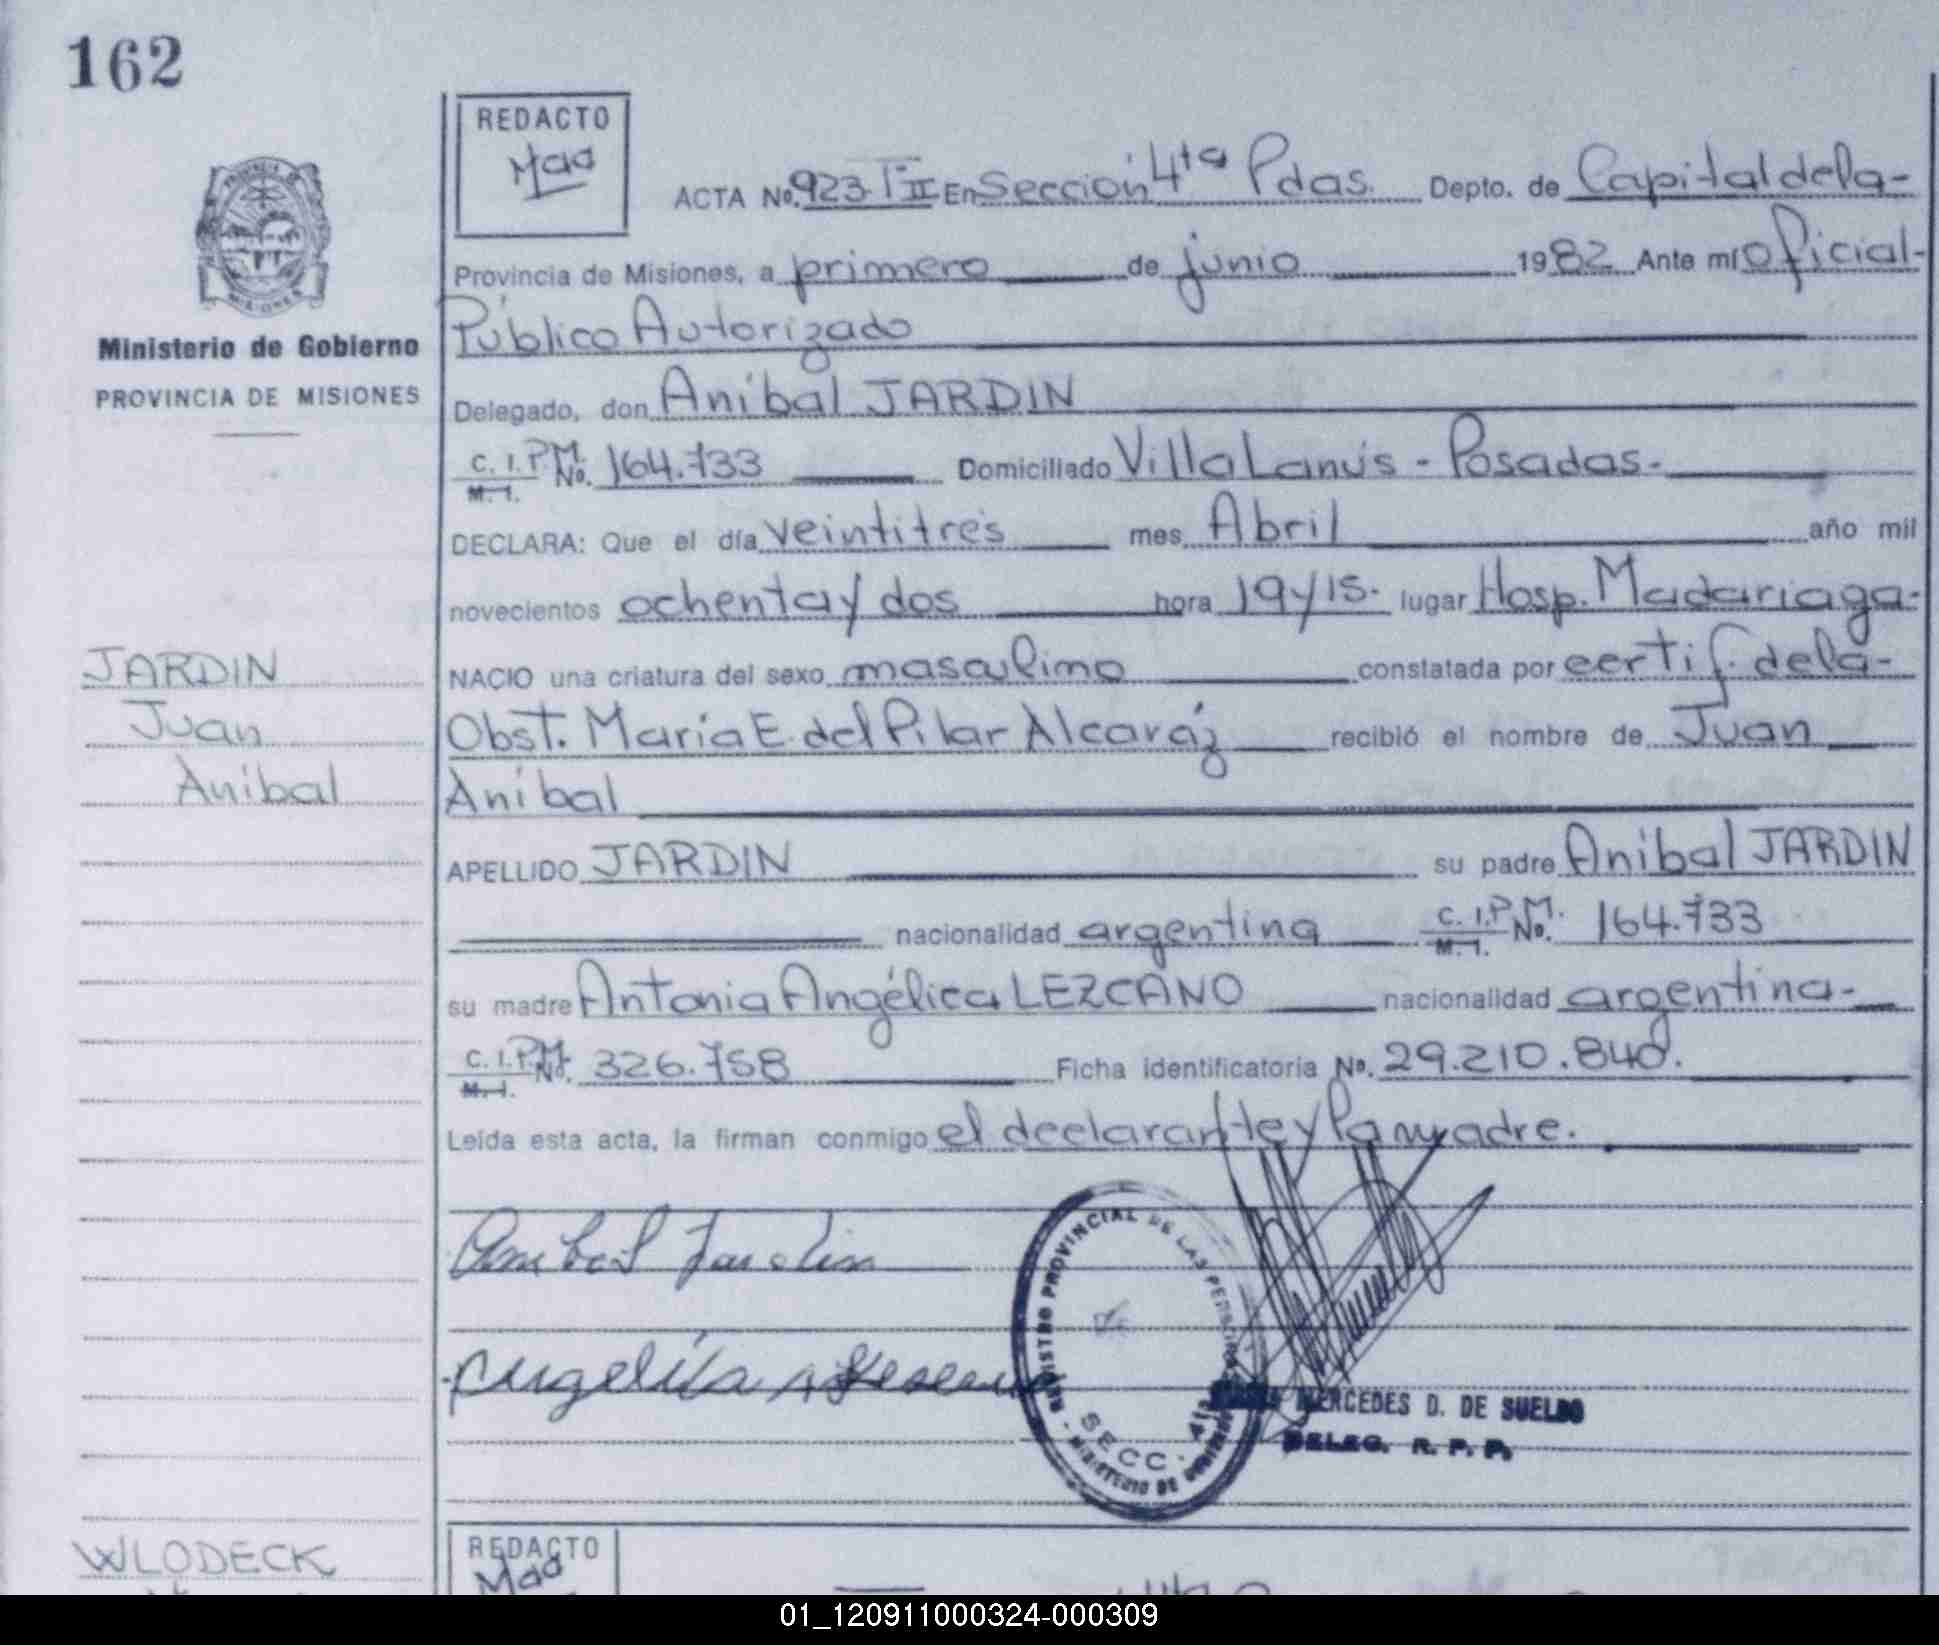 162
REDACTO
Mad
ACTA No. 923 Tº II En Sección 4ta Pdas. Depto. de Capital de la-
Provincia de Misiones, a primero de junio 1982 Ante mí Oficial-
Público Autorizado
Ministerio de Gobierno
PROVINCIA DE MISIONES
Delegado, don Aníbal JARDIN
C. I. P.M. No. 164.733 Domiciliado Villa Lanús - Posadas-
M. I.
DECLARA: Que el día veintitrés mes Abril año mil
novecientos ochenta y dos hora 19 y 15. lugar Hosp. Madariaga-
NACIO una criatura del sexo masculino constatada por certif. de la-
Obst. María E. del Pilar Alcaráz recibió el nombre de Juan
Aníbal
JARDIN
Juan
Aníbal
APELLIDO JARDIN su padre Aníbal JARDIN
nacionalidad argentina C. I. P.M. No. 164.733
M. I.
su madre Antonia Angélica LEZCANO nacionalidad argentina-
C. I. P.M. No. 326.758 Ficha identificatoria No. 29.210.840.
M. I.
Leída esta acta, la firman conmigo el declarante y la madre.
Anibal Jardin
REGISTRO PROVINCIAL DE LAS PERSONAS
SECC. 4ta
MINISTERIO DE GOBIERNO
MERCEDES D. DE SUELDO
DELEG. R. P. P.
WLODECK
REDACTO
Mad
01_120911000324-000309